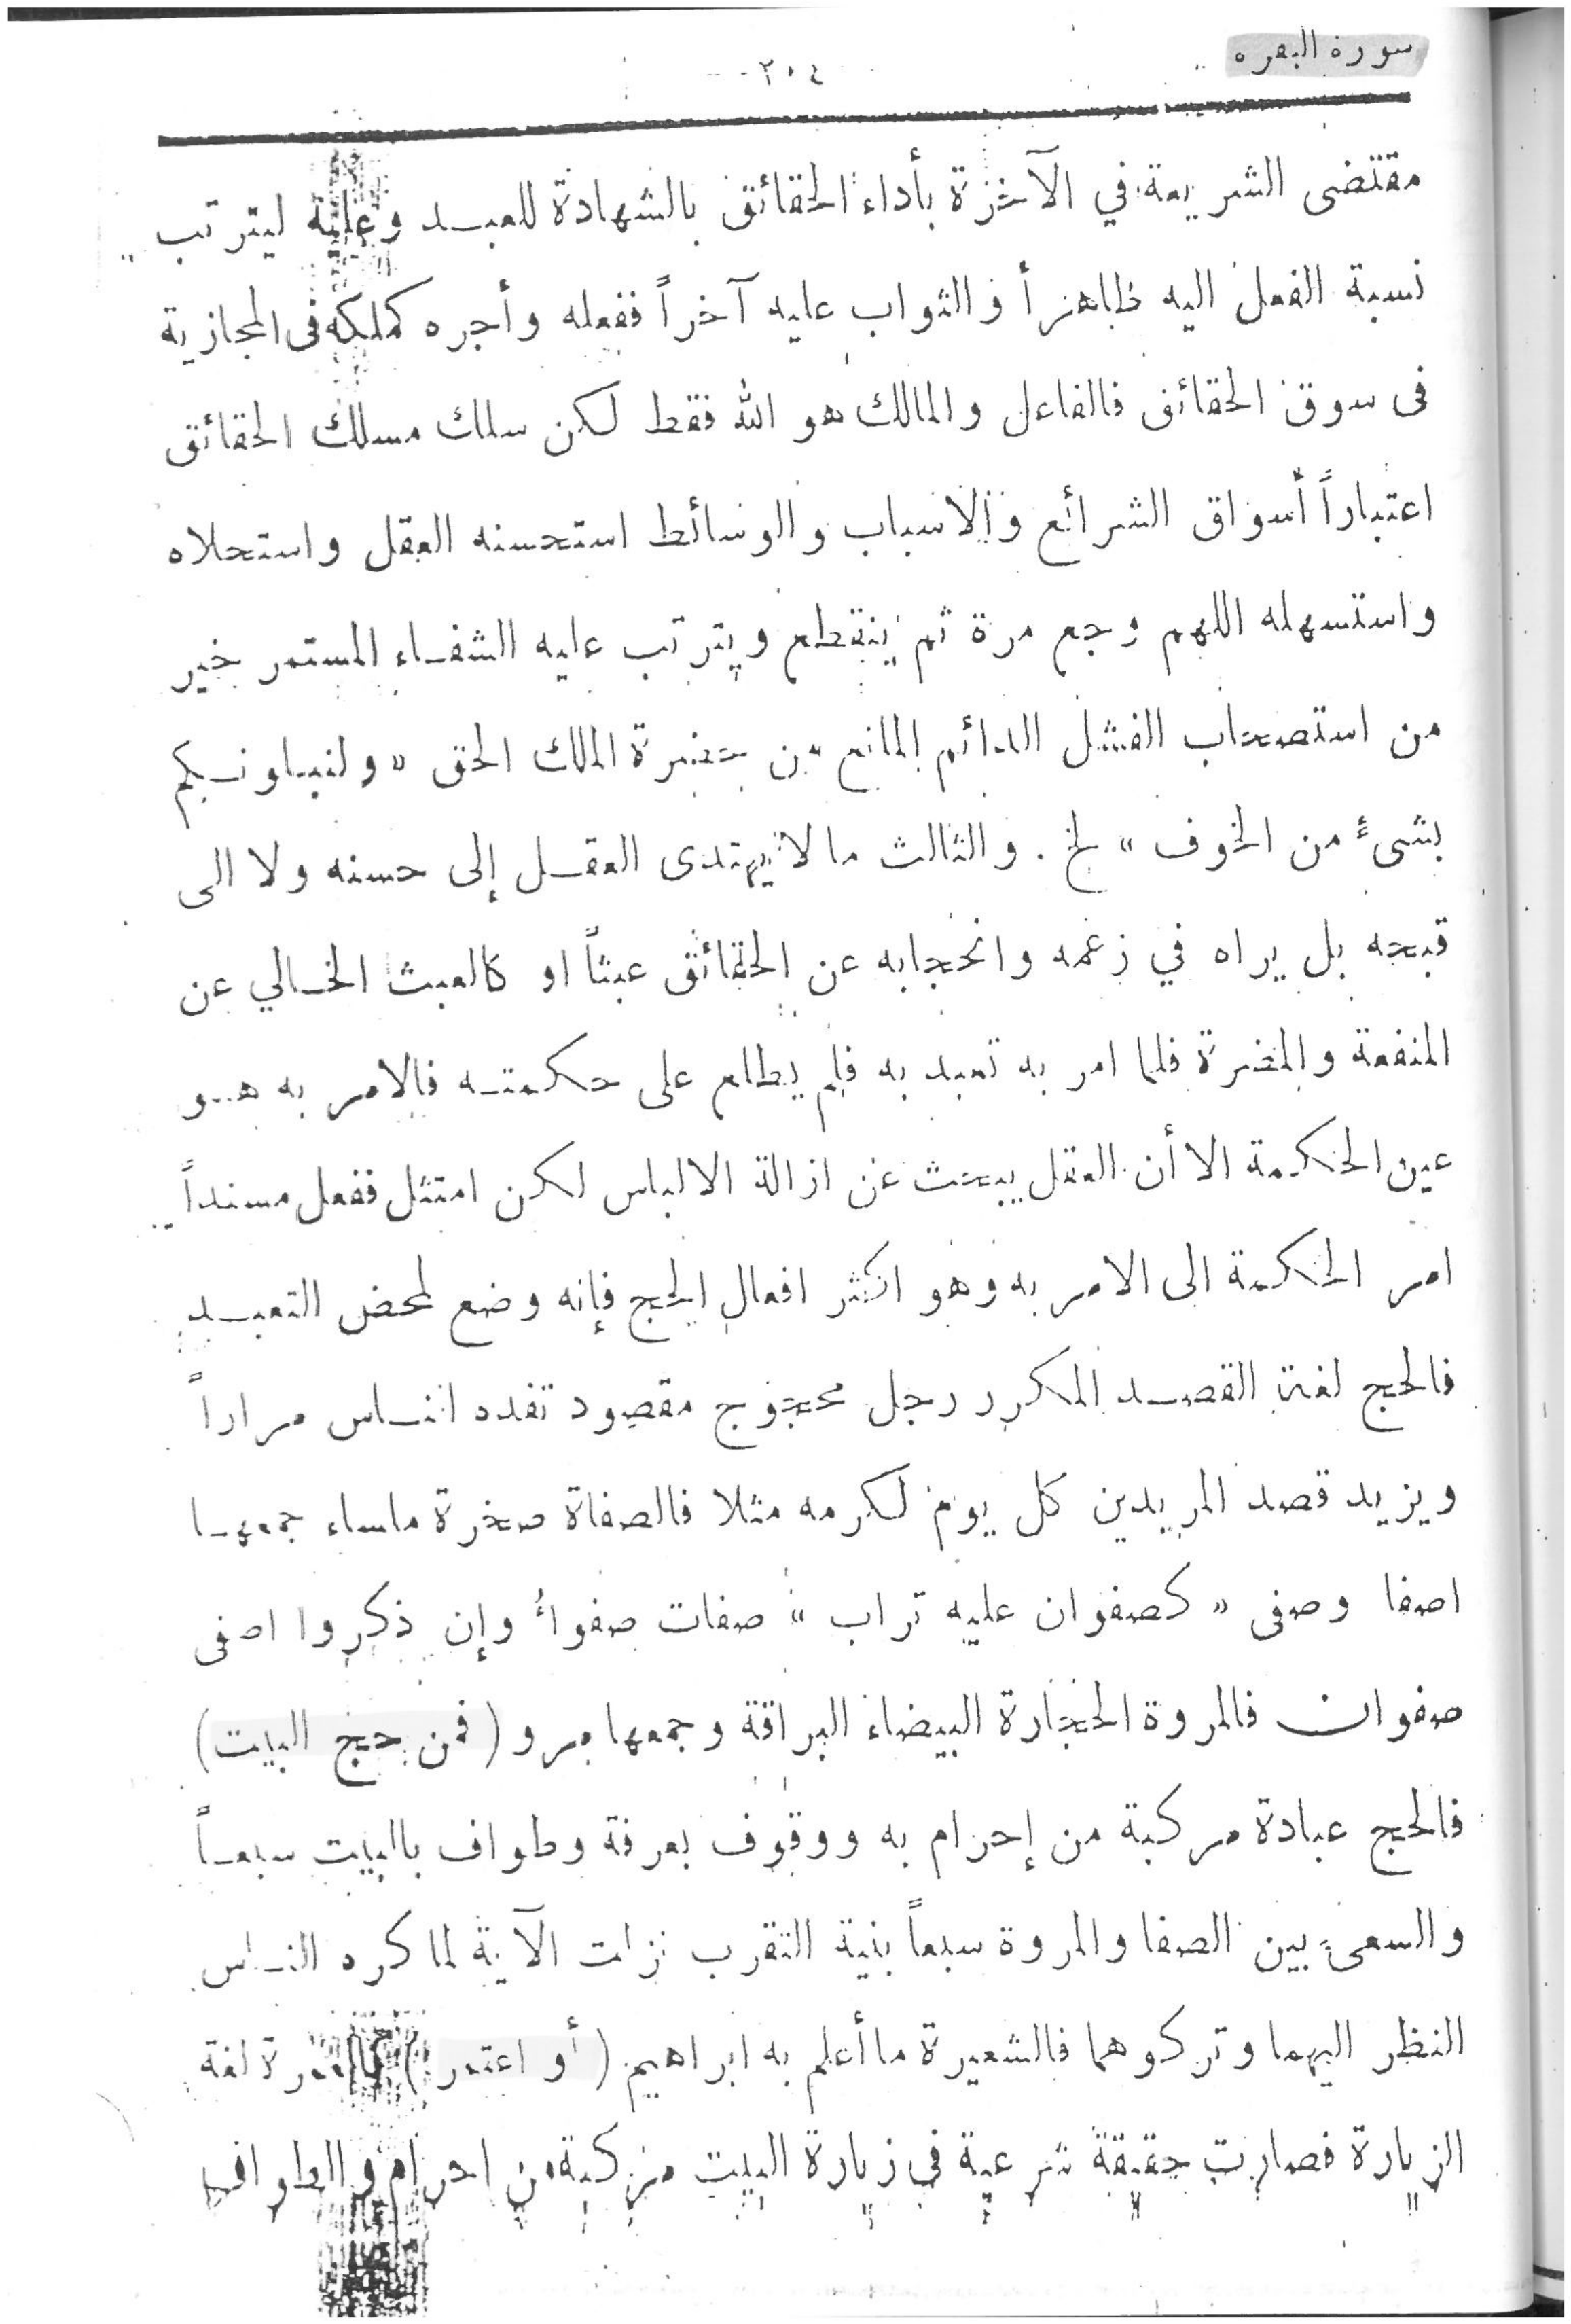 سورة البقرة
٢٠٤
مقتضى الشريعة في الآخرة بأداء الحقائق بالشهادة للعبد وعليه ليترتب
نسبة الفعل اليه ظاهراً والثواب عليه آخراً ففعله وأجره كملكه فى المجازية
فى سوق الحقائق فالفاعل والمالك هو الله فقط لكن سلك مسلك الحقائق
اعتباراً أسواق الشرائع والاسباب والوسائط استحسنه العقل واستحلاه
واستسهله اللهم وجع مرة ثم ينقطع ويترتب عليه الشفاء المستمر خير
من استصحاب الفشل الدائم المانع من حضرة الملك الحق « ولنبلونكم
بشىءٍ من الخوف » لخ . والثالث ما لا يهتدى العقل إلى حسنه ولا الى
قبحه بل يراه في زعمه وانحجابه عن الحقائق عبثاً او كالعبث الخالي عن
المنفعة والمضرة فلما امر به تعبد به فلم يطلع على حكمته فالامر به هو
عين الحكمة الا أن العقل يبحث عن ازالة الالباس لكن امتثل ففعل مسنداً
امر الحكمة الى الامر به وهو اكثر افعال الحج فإنه وضع لمحض التعبد
فالحج لغة القصد المكرر رجل محجوج مقصود تفده الناس مراراً
ويزيد قصد المريدين كل يوم لكرمه مثلا فالصفاة صخرة ملساء جمعها
اصفا وصفى « كصفوان عليه تراب » صفات صفواء وإن ذكروا اصفى
صفوان فالمروة الحجارة البيضاء البراقة وجمعها مرو (فمن حج البيت)
فالحج عبادة مركبة من إحرام به ووقوف بعرفة وطواف بالبيت سبعاً
والسعى بين الصفا والمروة سبعاً بنية التقرب نزلت الآية لما كره الناس
النظر اليهما وتركوهما فالشعيرة ما أعلم به ابراهيم (أو اعتمر) فالعمرة لغة
الزيارة فصارت حقيقة شرعية في زيارة البيت مركبة من احرام والطواف